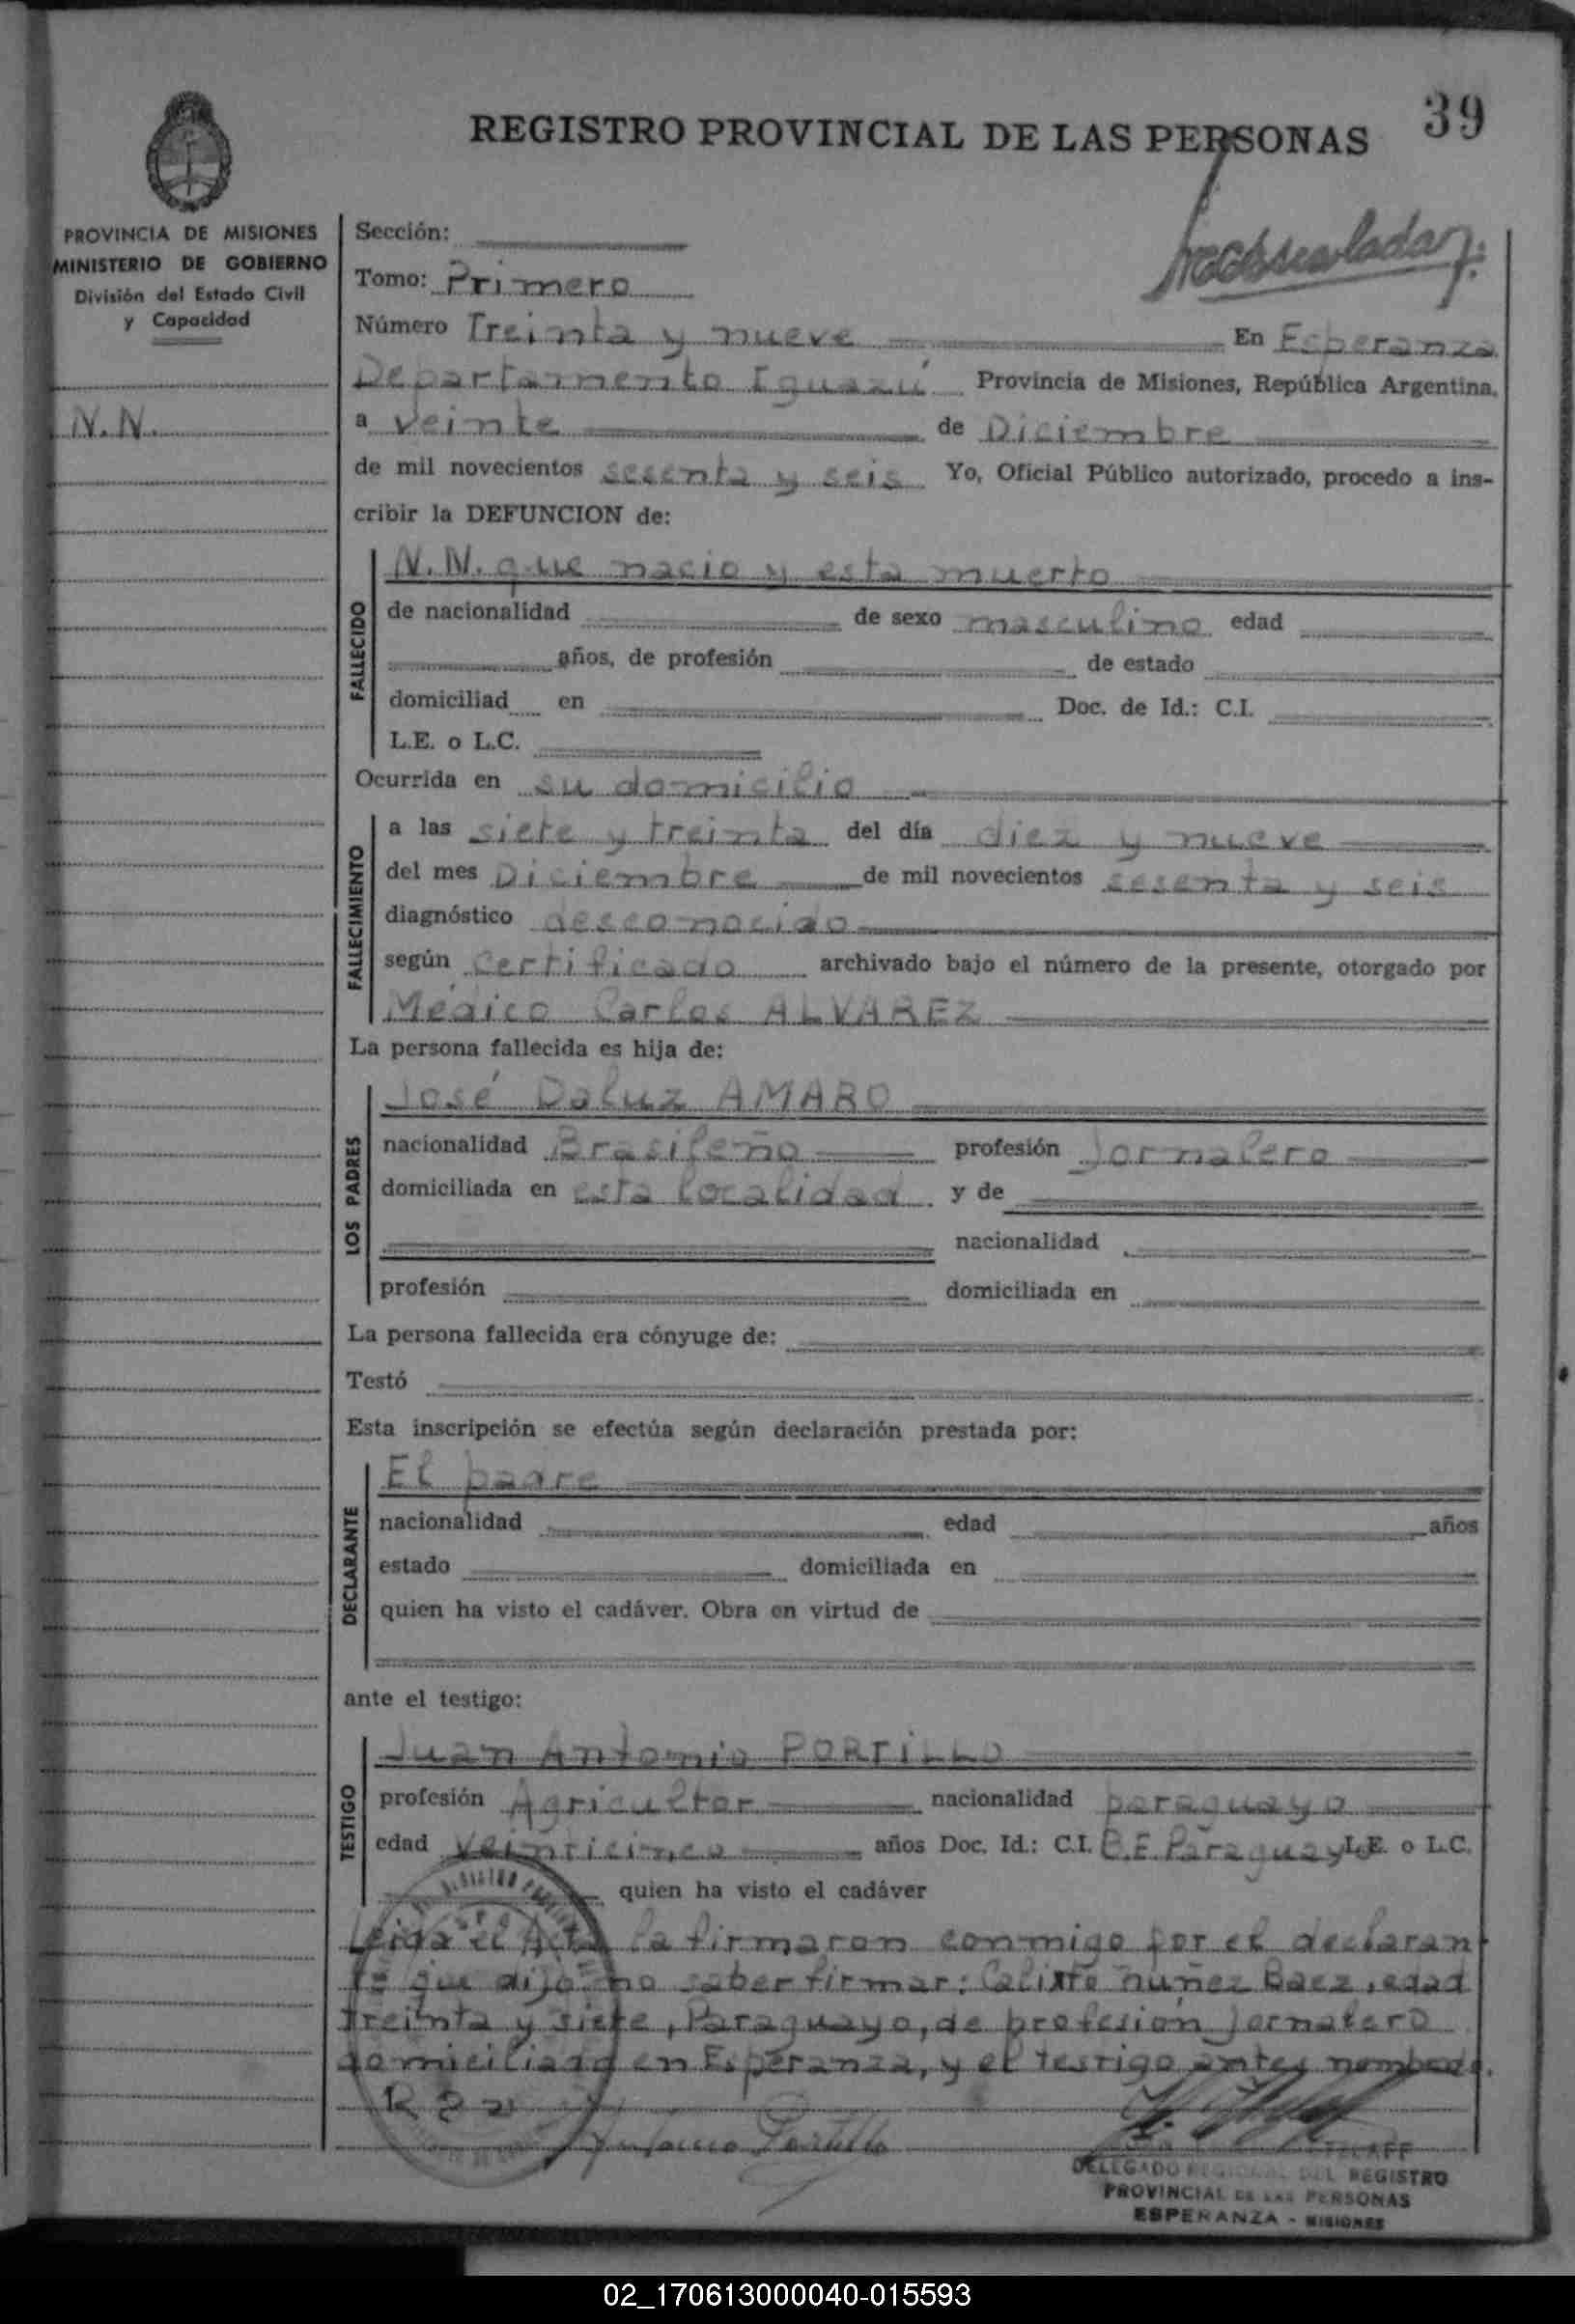 39
REGISTRO PROVINCIAL DE LAS PERSONAS
PROVINCIA DE MISIONES
MINISTERIO DE GOBIERNO
División del Estado Civil
y Capacidad
N.N.
Sección:
Tomo: Primero
Número Treinta y nueve En Esperanza
Departamento Iguazú Provincia de Misiones, República Argentina,
a veinte de Diciembre
de mil novecientos sesenta y seis Yo, Oficial Público autorizado, procedo a ins-
cribir la DEFUNCION de:
FALLECIDO
N.N. que nacio y esta muerto
de nacionalidad de sexo masculino edad
años, de profesión de estado
domiciliad en Doc. de Id.: C.I.
L.E. o L.C.
Ocurrida en su domicilio
FALLECIMIENTO
a las siete y treinta del día diez y nueve
del mes Diciembre de mil novecientos sesenta y seis
diagnóstico desconocido
según certificado archivado bajo el número de la presente, otorgado por
Médico Carlos ALVAREZ
La persona fallecida es hija de:
LOS PADRES
José Daluz AMARO
nacionalidad Brasileño profesión Jornalero
domiciliada en esta localidad y de
nacionalidad
profesión domiciliada en
La persona fallecida era cónyuge de:
Testó
Esta inscripción se efectúa según declaración prestada por:
DECLARANTE
El padre
nacionalidad edad años
estado domiciliada en
quien ha visto el cadáver. Obra en virtud de
ante el testigo:
TESTIGO
Juan Antonio PORTILLO
profesión Agricultor nacionalidad paraguayo
edad veinticinco años Doc. Id.: C.I. Paraguaya L.E. o L.C.
quien ha visto el cadáver
Leida el Acta la firmaron conmigo por el declaran
te que dijo no saber firmar: Calixto nuñez Baez, edad
treinta y siete, Paraguayo, de profesión Jornalero
domiciliado en Esperanza, y el testigo antes nombrado.
Portillo
DELEGADO REGIONAL DEL REGISTRO
PROVINCIAL DE LAS PERSONAS
ESPERANZA - MISIONES
02_170613000040-015593